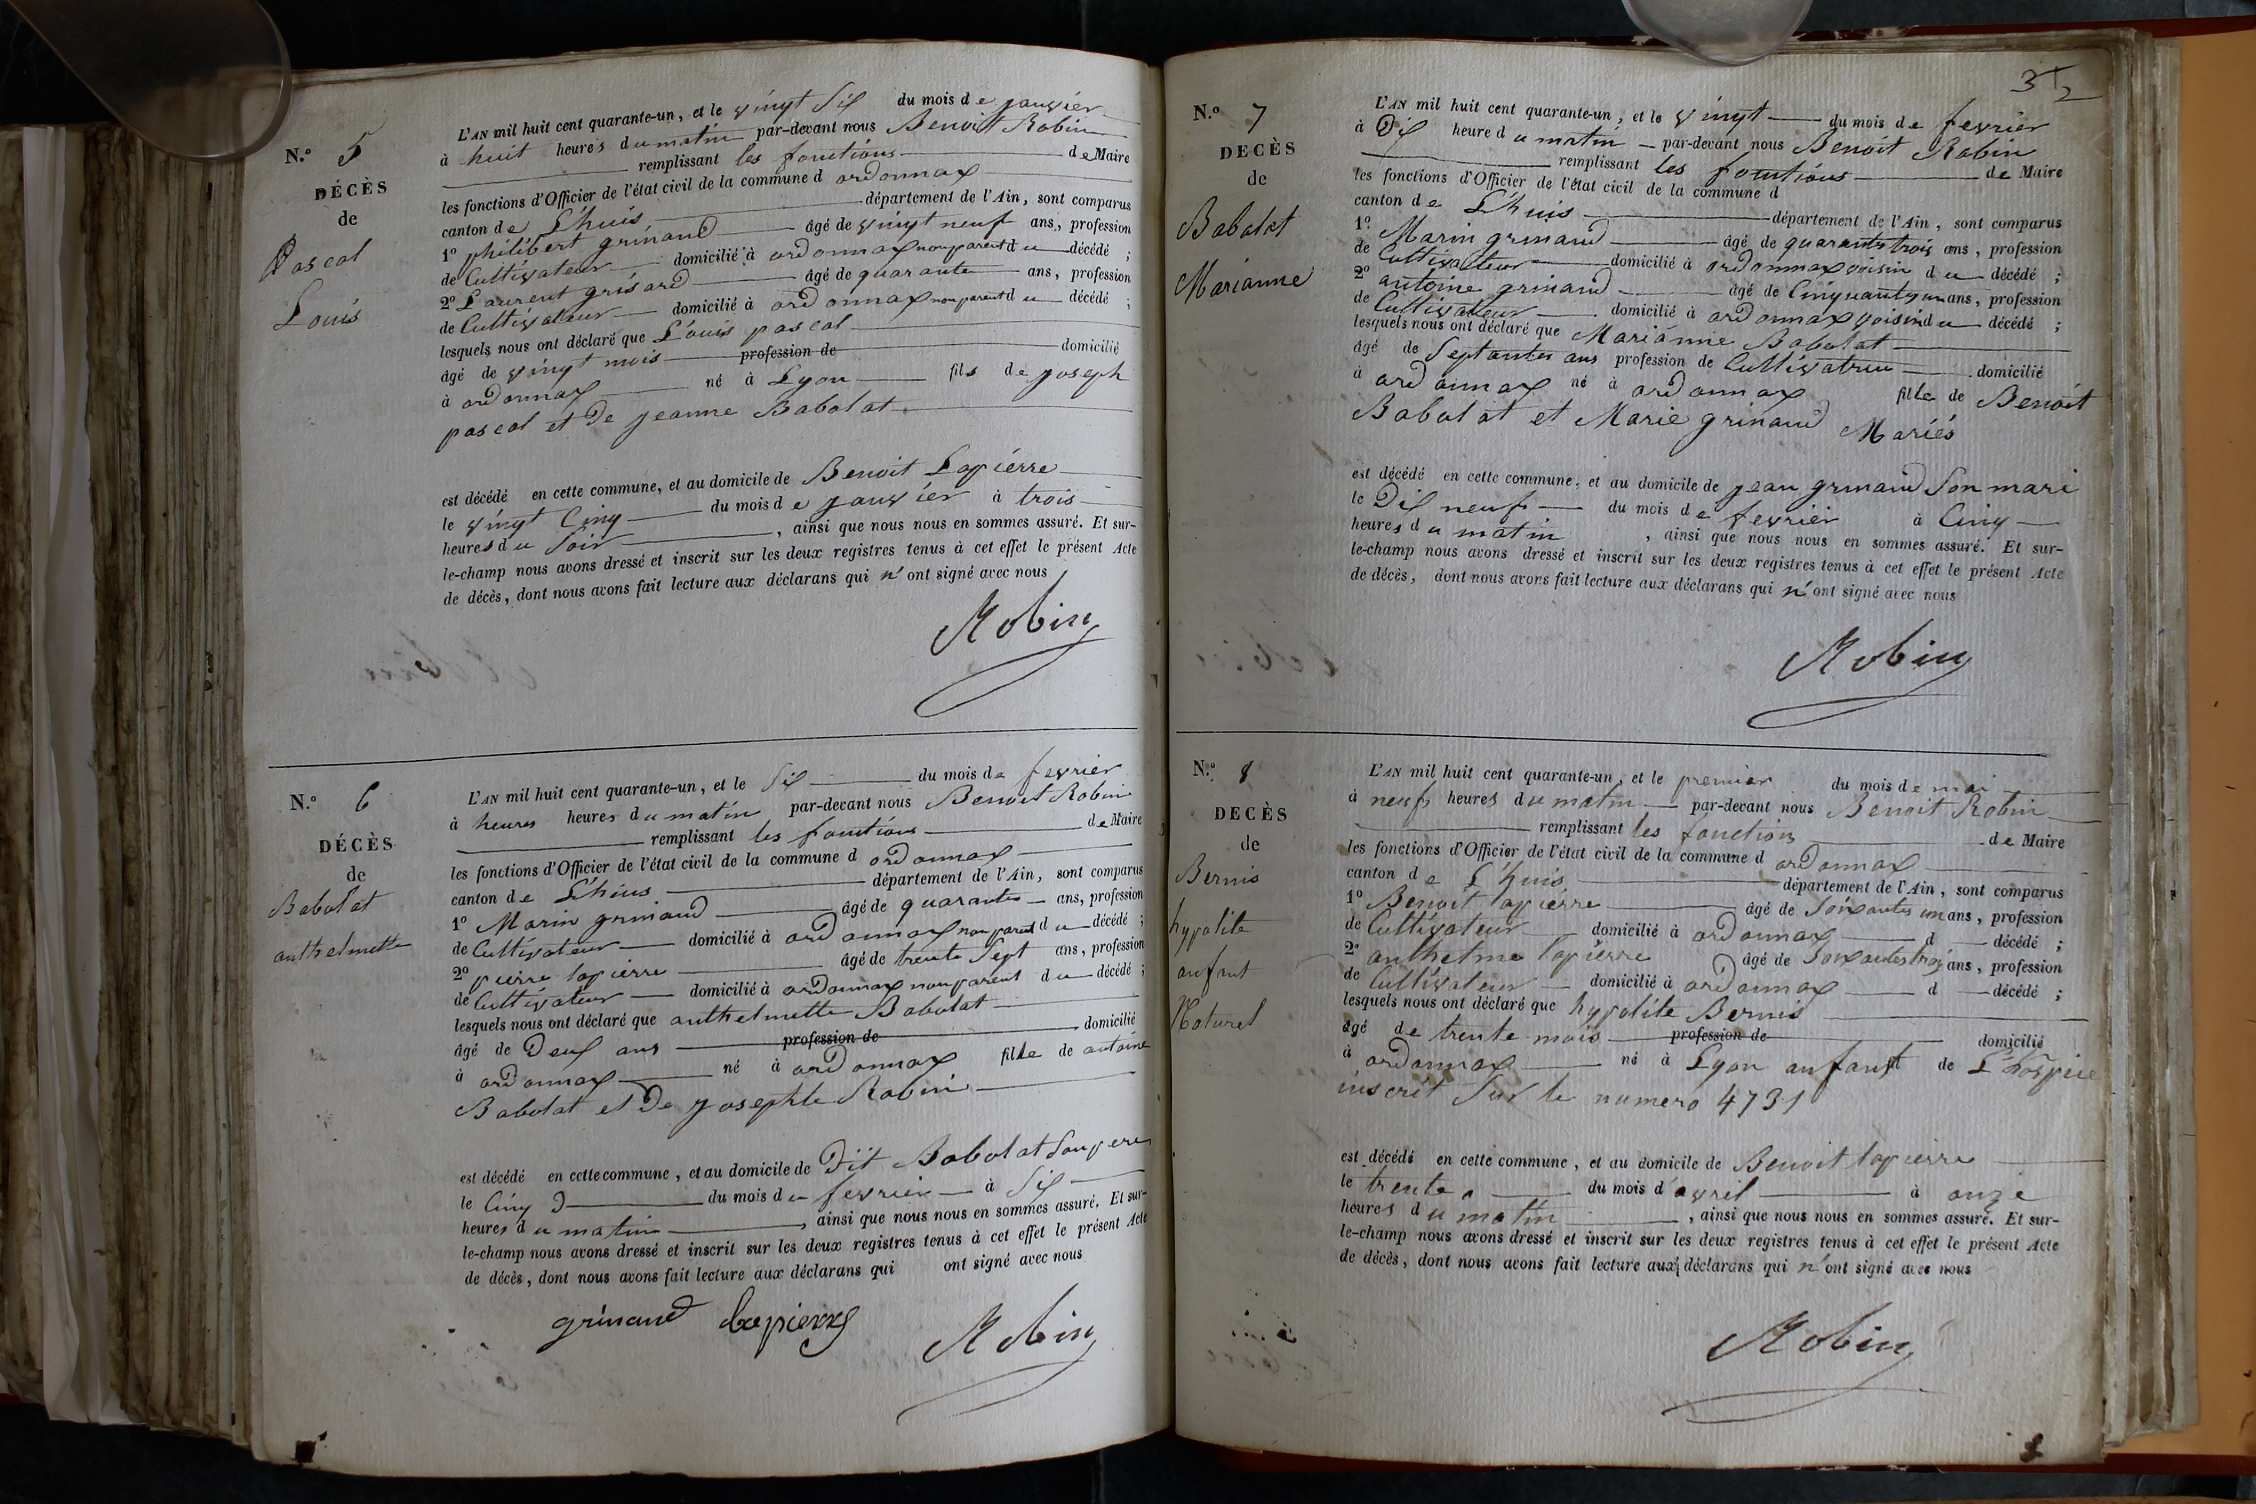 N.º 5
DÉCÈS
de
Pascal
Louis
L'AN mil huit cent quarante-un, et le vingt six du mois de janvier
à huit heures du matin par-devant nous Benoit Robin
remplissant les fonctions de Maire
les fonctions d'Officier de l'état civil de la commune d ordonnax
canton de L'huis département de l'Ain, sont comparus
1º philibert grinand âgé de vingt neuf ans, profession
de Cultivateur domicilié à ordonnax non parent du décédé ;
2º Laurent grisard âgé de quarante ans, profession
de Cultivateur domicilié à ordonnax non parent du décédé ;
lesquels nous ont déclaré que Louis pascal
âgé de vingt mois profession de domicilié
à ordonnax né à Lyon fils de joseph
pascal et de jeanne Babolat
est décédé en cette commune, et au domicile de Benoit Lapierre
le vingt Cinq du mois de janvier à trois
heures du soir , ainsi que nous nous en sommes assuré. Et sur-
le-champ nous avons dressé et inscrit sur les deux registres tenus à cet effet le présent Acte
de décès, dont nous avons fait lecture aux déclarans qui n'ont signé avec nous
Robin
N.º 6
DÉCÈS
de
Babolat
anthelmette
L'AN mil huit cent quarante-un, et le six du mois de fevrier
à heures heures du matin par-devant nous Benoit Robin
remplissant les fonctions de Maire
les fonctions d'Officier de l'état civil de la commune d ordonnax
canton de L'huis département de l'Ain, sont comparus
1º Marin grinand âgé de quarante ans, profession
de Cultivateur domicilié à ordonnax non parent du décédé ;
2º pierre lapierre âgé de trente sept ans, profession
de Cultivateur domicilié à ordonnax non parent du décédé ;
lesquels nous ont déclaré que anthelmette Babolat
âgé de Deux ans profession de domicilié
à ordonnax né à ordonnax fille de antoine
Babolat et de josephte Robin
est décédé en cette commune, et au domicile de Dit Babolat son pere
le Cinq du mois de fevrier à six
heures du matin , ainsi que nous nous en sommes assuré. Et sur-
le-champ nous avons dressé et inscrit sur les deux registres tenus à cet effet le présent Acte
de décès, dont nous avons fait lecture aux déclarans qui ont signé avec nous
grinand lapierre Robin
N.º 7
DECÈS
de
Babolat
Marianne
L'AN mil huit cent quarante-un, et le vingt du mois de fevrier
à Dix heure du matin par-devant nous Benoit Robin
remplissant les fonctions de Maire
les fonctions d'Officier de l'état civil de la commune d
canton de L'huis département de l'Ain, sont comparus
1º Marin grinand âgé de quarante trois ans, profession
de Cultivateur domicilié à ordonnax voisin du décédé ;
2º antoine grinand âgé de Cinquante un ans, profession
de Cultivateur domicilié à ordonnax voisin du décédé ;
lesquels nous ont déclaré que Marianne Babolat
âgé de septantes ans profession de Cultivatrice domicilié
à ordonnax né à ordonnax fille de Benoit
Babolat et Marie grinand Mariés
est décédé en cette commune, et au domicile de jean grinand son mari
le Dix neuf du mois de fevrier à Cinq
heures du matin , ainsi que nous nous en sommes assuré. Et sur-
le-champ nous avons dressé et inscrit sur les deux registres tenus à cet effet le présent Acte
de décès, dont nous avons fait lecture aux déclarans qui n'ont signé avec nous
Robin
N.º 8
DECÈS
de
Bernis
hypolite
anfant
Naturel
L'AN mil huit cent quarante-un, et le premier du mois de mai
à neuf heures du matin par-devant nous Benoit Robin
remplissant les fonction de Maire
les fonctions d'Officier de l'état civil de la commune d ordonnax
canton de L'huis département de l'Ain, sont comparus
1º Benoit lapierre âgé de soixantes un ans, profession
de Cultivateur domicilié à ordonnax d décédé ;
2º anthelme lapierre âgé de soixantes trois ans, profession
de Cultivateur domicilié à ordonnax d décédé ;
lesquels nous ont déclaré que hypolite Bernis
âgé de trente mois profession de domicilié
à ordonnax né à Lyon anfant de L'hospice
inscrit sur le numero 4731
est décédé en cette commune, et au domicile de Benoit lapierre
le trente du mois d'avril à onze
heures du matin , ainsi que nous nous en sommes assuré. Et sur-
le-champ nous avons dressé et inscrit sur les deux registres tenus à cet effet le présent Acte
de décès, dont nous avons fait lecture aux déclarans qui n'ont signé avec nous
Robin